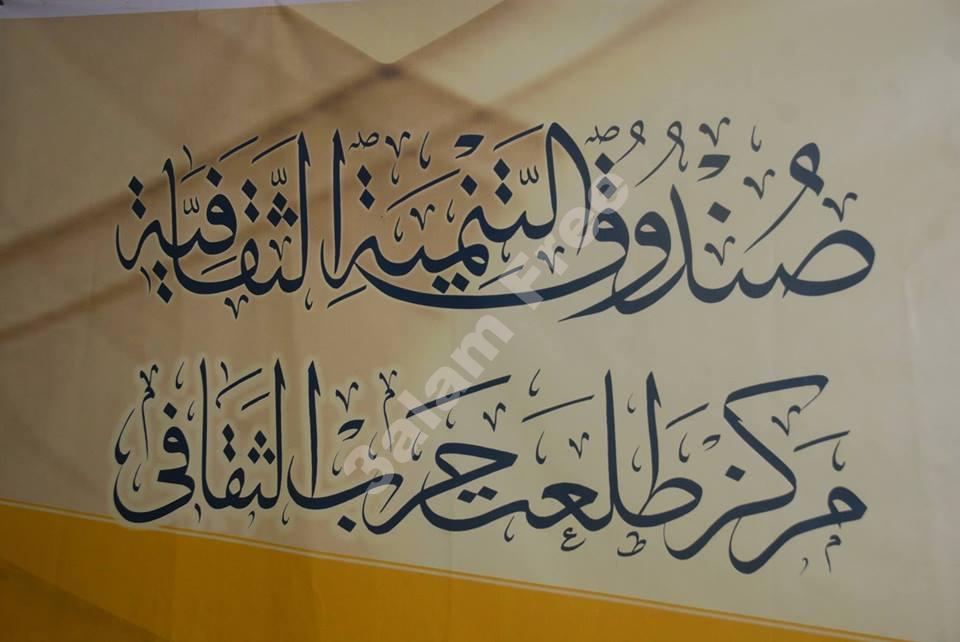 صُنْدُوقُ التَّنْمِيَةِ الثَّقَافِيَّة
مركز طلعت حرب الثقافى
3alam Free